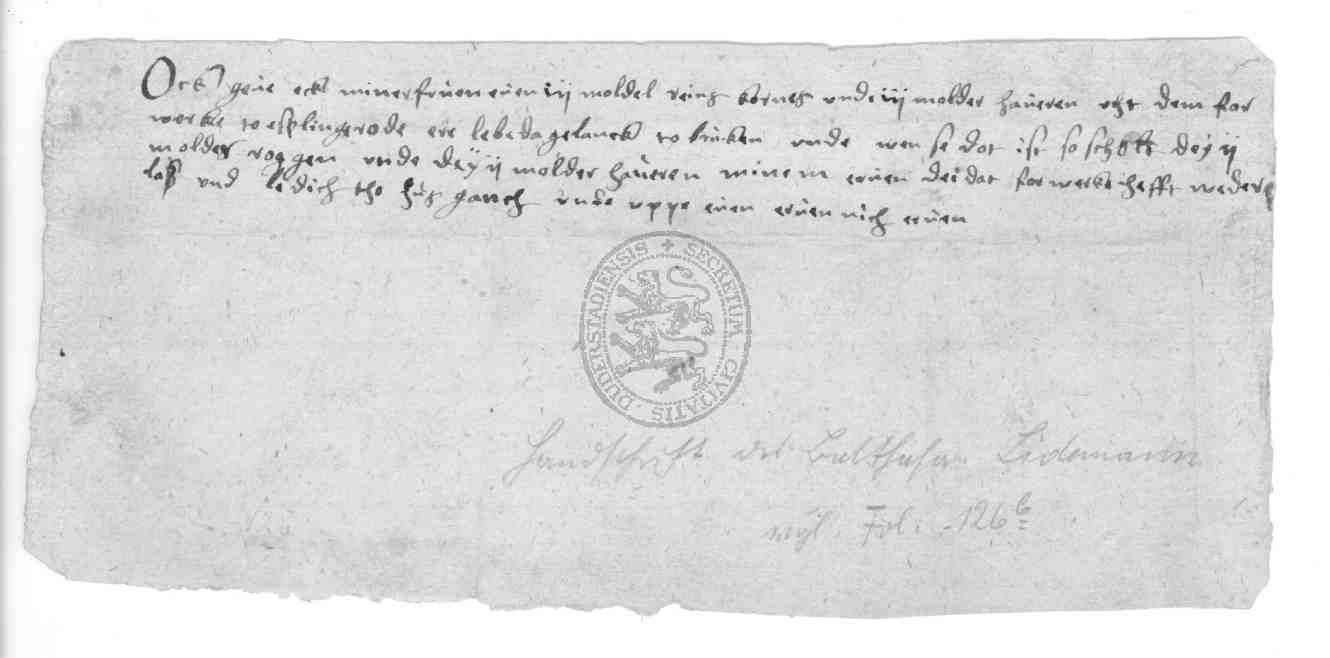 Ock geue eck miner fruuen euen iij molder reins kornes unde iij molder haueren uht dem for
worke to esplingerode ere lebedagelanck to bruken unde wen se dot ist so schollt dey ij
molder roggen unde dey ij molder haueren minem eruen dei dat forwerke hefft wedder
laß und ledich tho hus
gan unde uppe euen eruen nich eruen
SECRETUM · CIVITATIS · DUDERSTADIENSIS
Handschrift des Balthasar Lidemann
vgl. Fol. 126 b